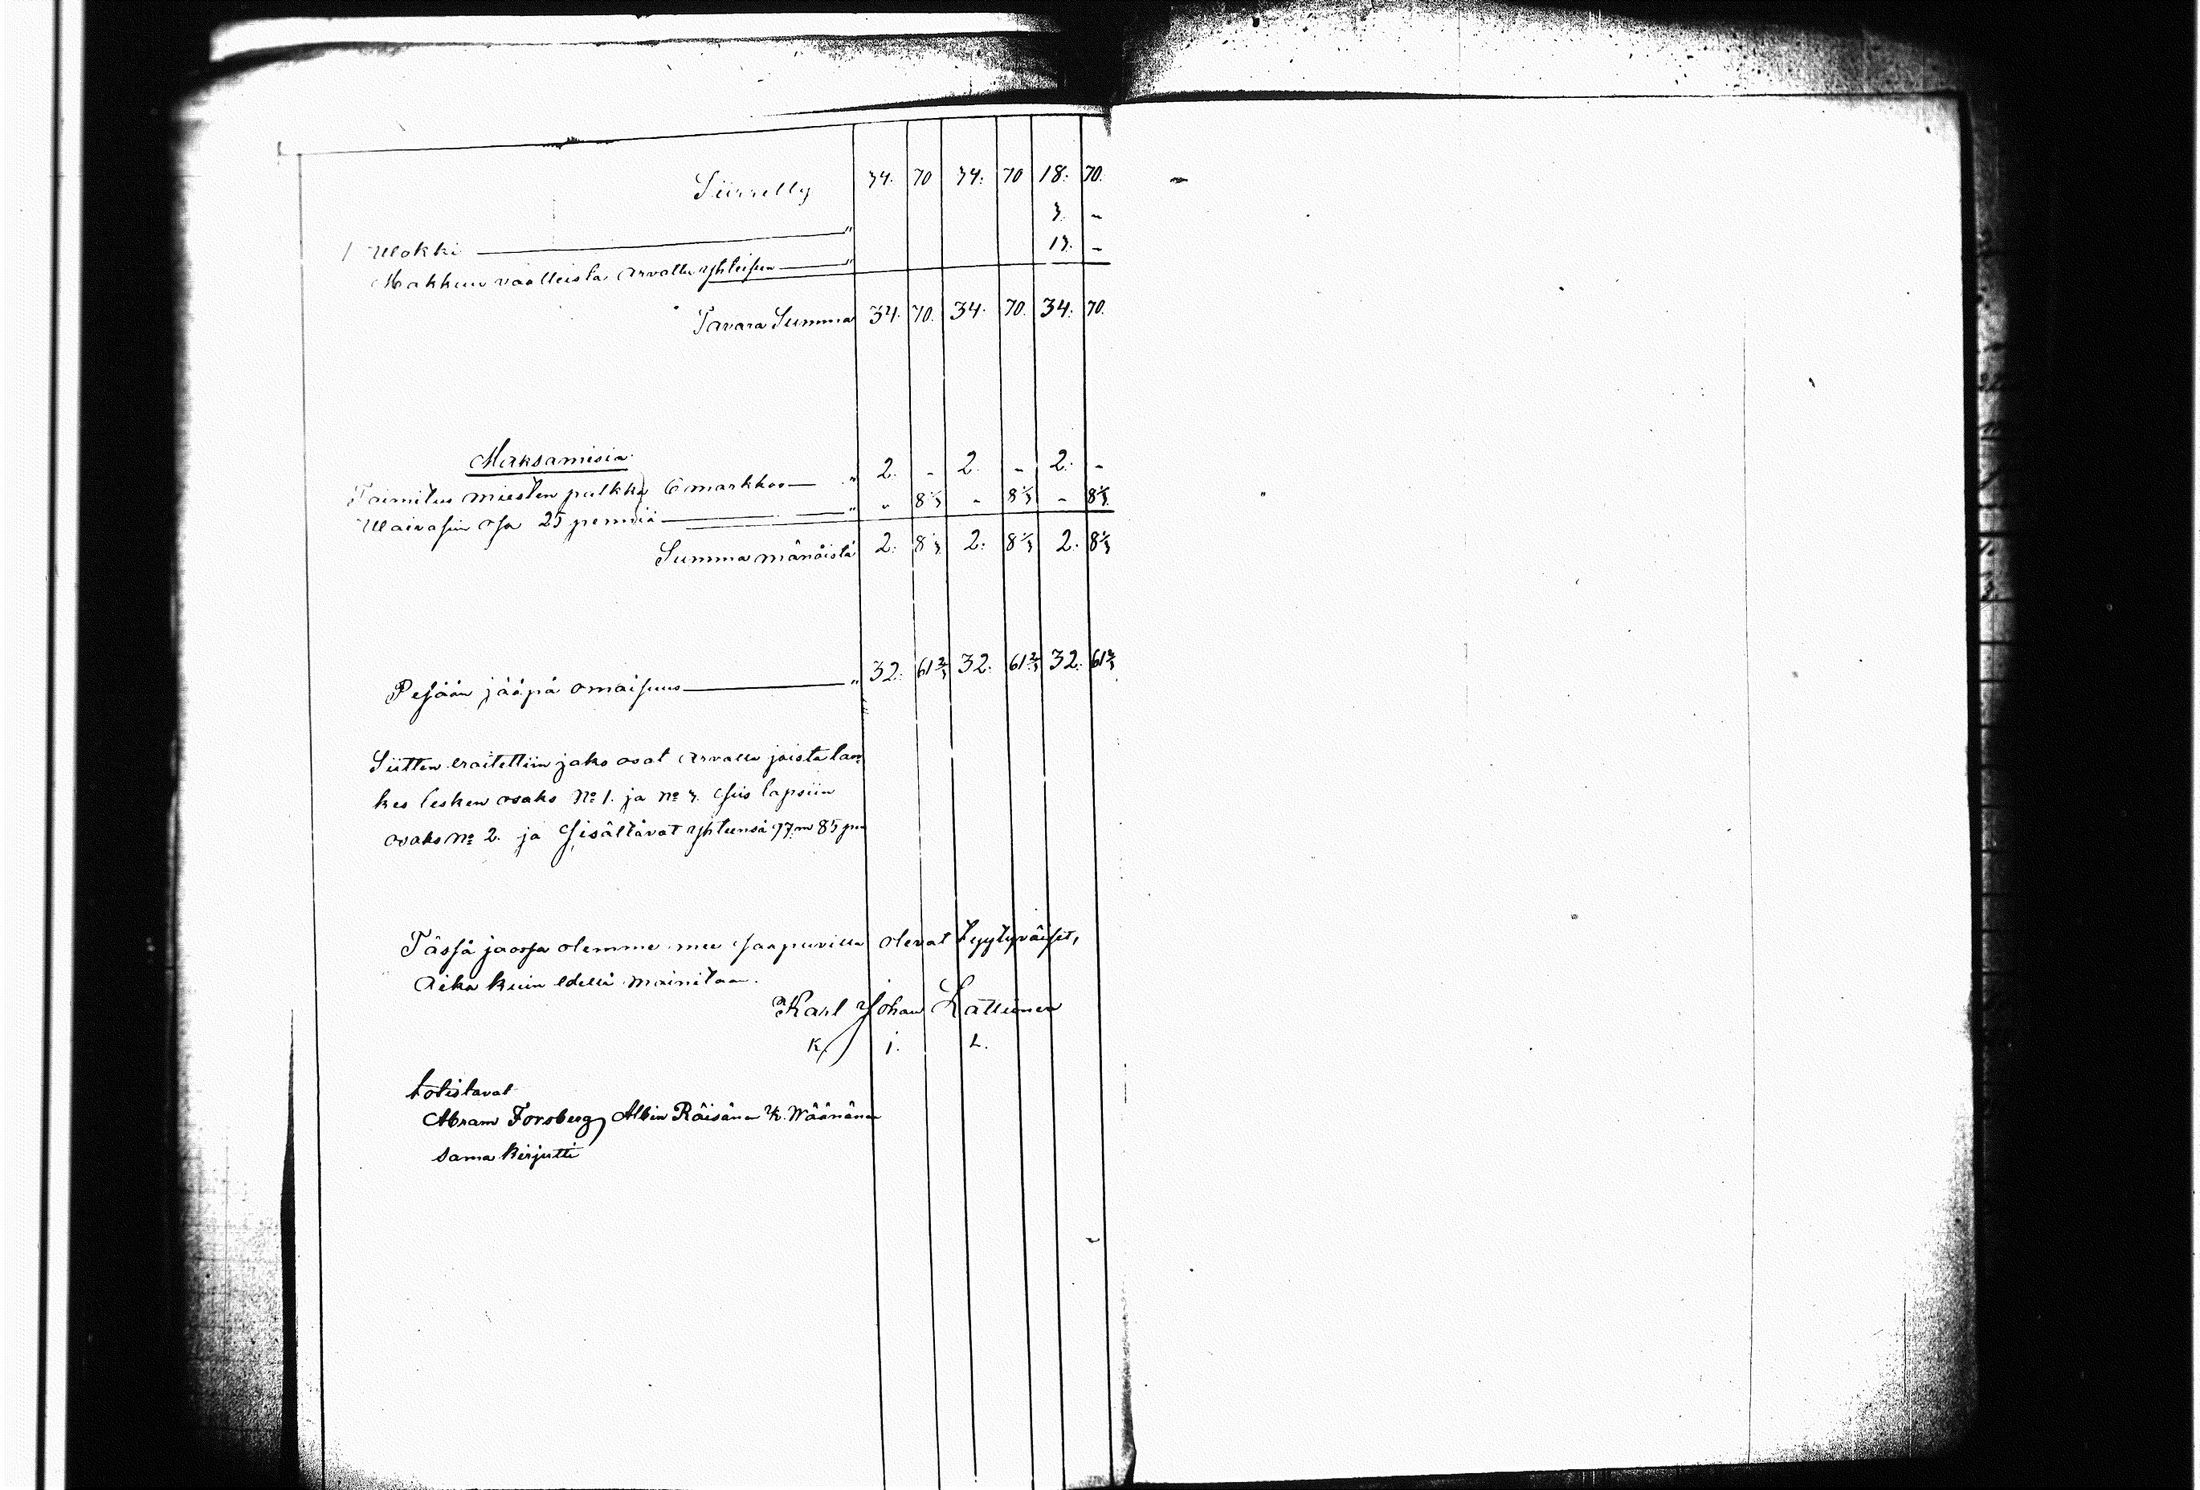 Siirretty 34. 70 34. 70 18. 70.
1 Wokki — " 3. -
Makkuu vaatteista arvattu yhteisen — " 13. -
Tavara Summa 34. 70. 34. 70. 34. 70.
Maksamisia
Toimitus miesten palkka 6 markkaa — " 2. - 2. - 2. -
Waivasin osa 25 penniä — " " 8 1/3 - 8 1/3 - 8 1/3
Summa mänöistä 2. 8 1/3 2. 8 1/3 2. 8 1/3
Pesään jääpä omaisuus — " 32. 61 2/3 32. 61 2/3 32. 61 2/3
Siitten eroitettiin jako osat arvalla joista lan
kes lesken osaks No 1. ja No 3. siis lapsiin
osaks No 2. ja sisältävät yhteensä 97 m 85 pn
Tässä jaossa olemme mee saapuvilla olevat tyytyväiset,
Aika kuin edellä mainitaan.
Karl Johan Lättiinen
K. J. L.
totistavat
Abram Forsberg, Albin Räisänen K. Wäänänen
sama kirjutti